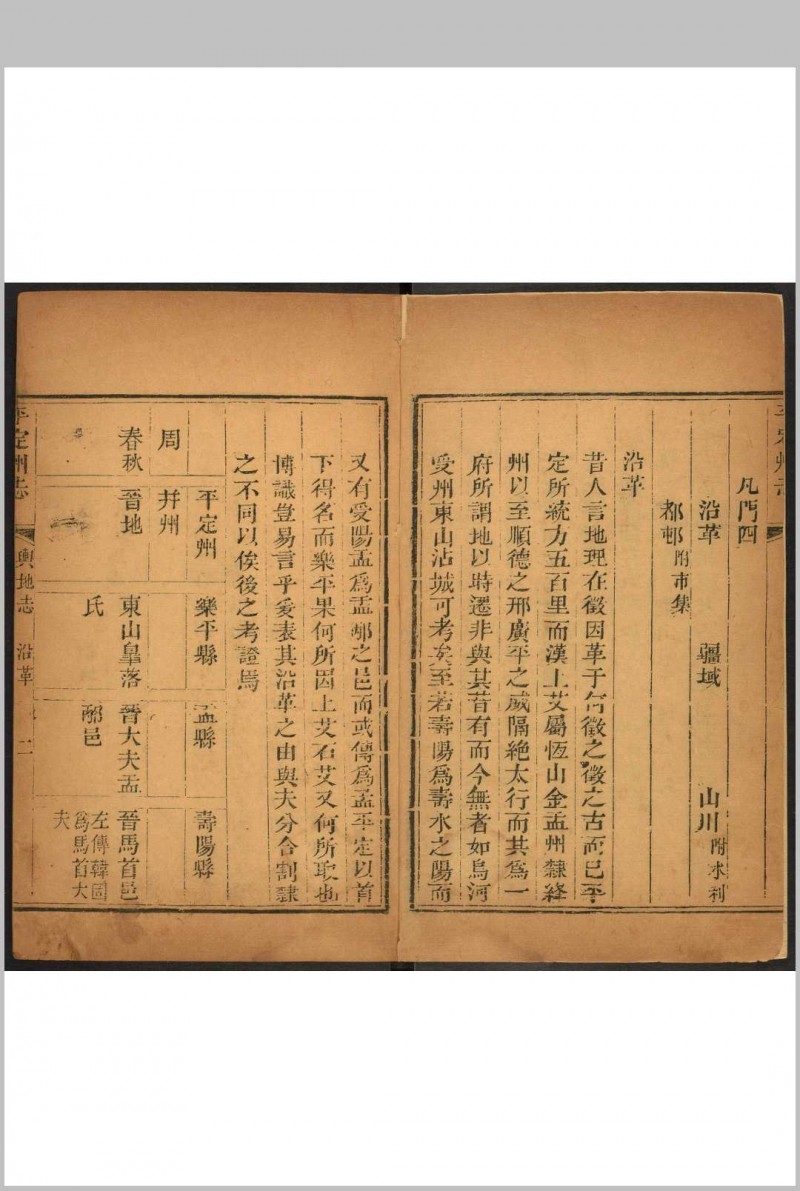 凡門四
沿革 疆域 山川附水利
都邨附市集
沿革
昔人言地理在徵因革于何徵之徵之古而已平
定所統方五百里而漢上艾屬恆山金盂州隸絳
州以至順德之邢廣平之威隔絶太行而其爲一
府所謂地以時遷非與其昔有而今無者如烏河
受州東山沾城可考矣至若壽陽爲壽水之陽而
又有受陽盂爲盂邮之邑而或傳爲孟平定以首
下得名而樂平果何所因上艾石艾又何所取也
博識豈易言乎爰表其沿革之由與夫分合割隸
之不同以俟後之考證焉
平定州 樂平縣 盂縣 壽陽縣
周 幷州
春秋 晉地 東山臯落氏 晉大夫盂邴邑 晉馬首邑左傳韓固爲馬首大夫
平定州志 輿地志 沿革 二